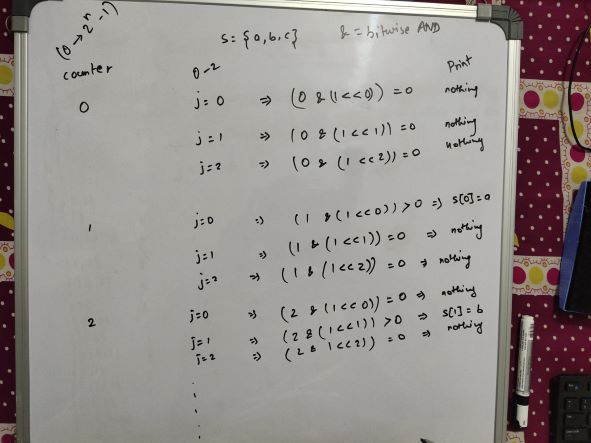 (0 → 2ⁿ-1)
S = {a, b, c} & = bitwise AND
counter 0-2 Print
0 j = 0 ⇒ (0 & (1<<0)) = 0 nothing
j = 1 ⇒ (0 & (1<<1)) = 0 nothing
j = 2 ⇒ (0 & (1<<2)) = 0 nothing
1 j=0 ⇒ (1 & (1<<0)) > 0 ⇒ S[0] = a
j=1 ⇒ (1 & (1<<1)) = 0 ⇒ nothing
j=2 ⇒ (1 & (1<<2)) = 0 ⇒ nothing
2 j=0 ⇒ (2 & (1<<0)) = 0 ⇒ nothing
j=1 ⇒ (2 & (1<<1)) > 0 ⇒ S[1] = b
j=2 ⇒ (2 & 1<<2)) = 0 ⇒ nothing